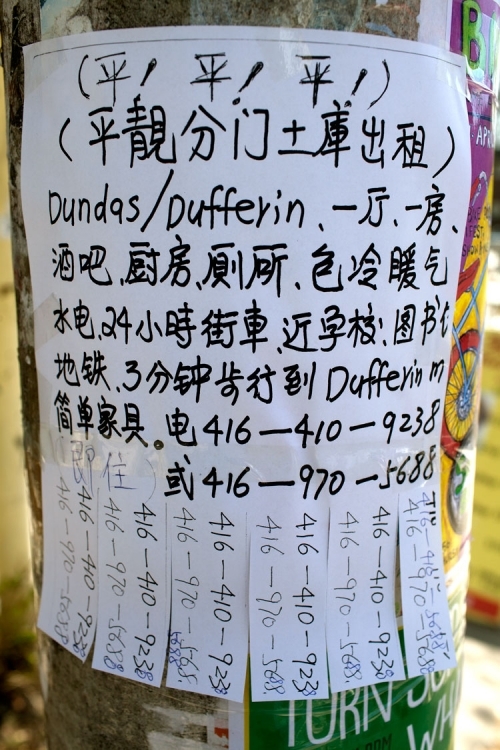 （平！ 平！ 平！）
（平靚分门土庫出租）
Dundas/Dufferin、一厅、一房、
酒吧、厨房、厠所、包冷暖气
水电、24小時街車、近学校、图书
地铁、3分钟步行到 Dufferin m
简单家具。电416—410—9238
（即住） 或416—970—5688
416—410—9238
416—970—5688
416—410—9238
416—970—5688
416—410—923
416—970—568
416—410—923
416—970—5688
416—410—9238
416—970—5688
416—970—5688
TURN
WH